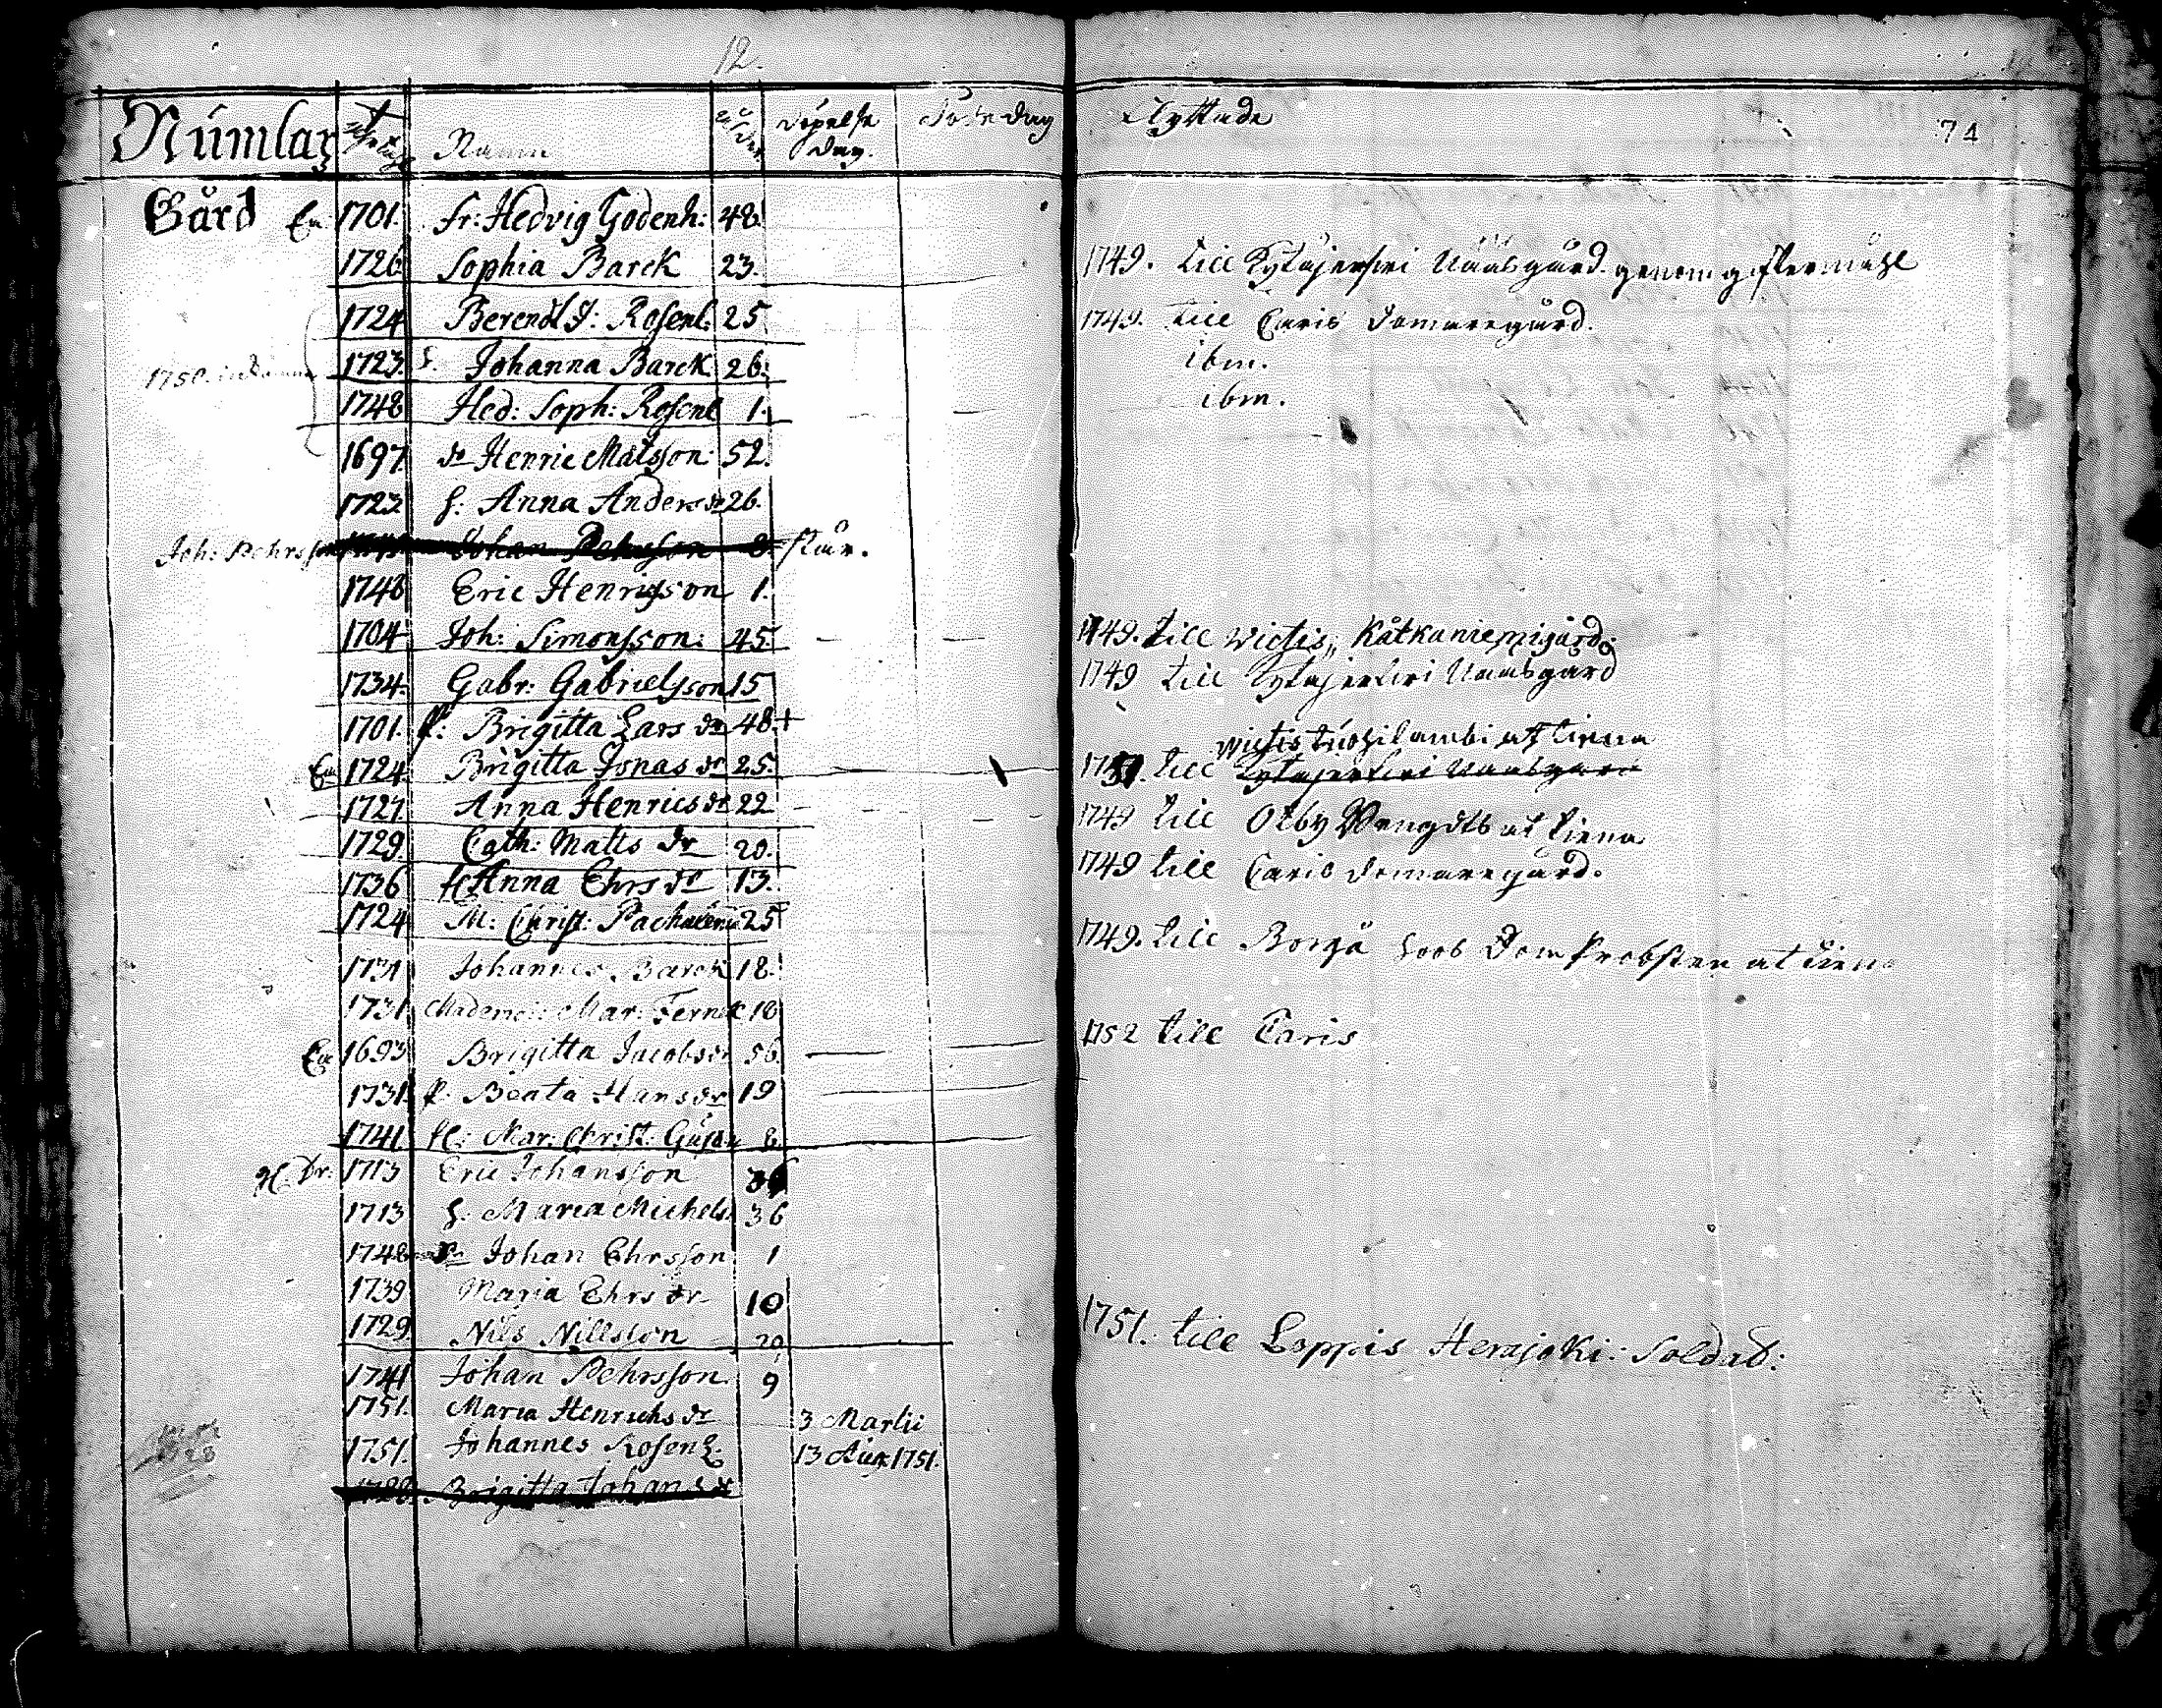 12.
Numlax Namn Ålder Döpelse dag. Döde dag Flyttade 74
Gård En 1701. fr: Hedvig Godenh: 48.
1726 Sophia Barck 23. 1749. till Kytäjerfwi Näsgård genom giftermåhl
1724 Berendt J: Rosenl: 25 1749. till Caris Domaregård.
1750. 1723. h. Johanna Barck 26. ibm.
1748 Hed: Soph: Rosenl 1. ibm.
1697 dr Henric Matsson 52.
1723 h: Anna Anders dr 26.
Joh: Pehrsson Johan Pehrsson 8.
1748 Eric Henrigsson 1.
1704 Joh: Simonsson: 45. 1749. till Wichtis, Kåtkaniemigård.
1734. Gabr: Gabrielsson 15 1749 till Kytäjerfwi Näsgård
1701. P: Brigitta Lars dr 48. +
Wichtis at tiena
En 1724 Brigitta Jonas dr 25. 1751. till Kytäjerfwi Näsgård
1727 Anna Henrics dr 22 1749 till Olby at tiena
1729 Cath: Matts dr 20. 1749 till Caris Domaregård.
1736 fl Anna Ehrs dr 13.
1724 M: Christ: 25 1749. till Borgå hoos Dom Probsten at tiena
1731 Johannes Barck 18.
1731. Mademois: Mar: 18 1752 till Caris
En 1693 Brigitta Jacobs dr 56
1731. P. Beata Hans dr 19
1741 fl: Mar: Christ: 8
1713 Eric Johansson 36
1713 h: Maria Michels 36
1748 Johan Ehrsson 1
1739 Maria Ehrs dr 10
1729. Nils Nillsson 20 1751. till Loppis Herajoki: Soldat:
1741 Johan Pehrsson. 9
1751. Maria Henrichs dr 3 Martii
1751. Johannes Rosenl. 13 Aug: 1751.
1728. Brigitta Johans dr